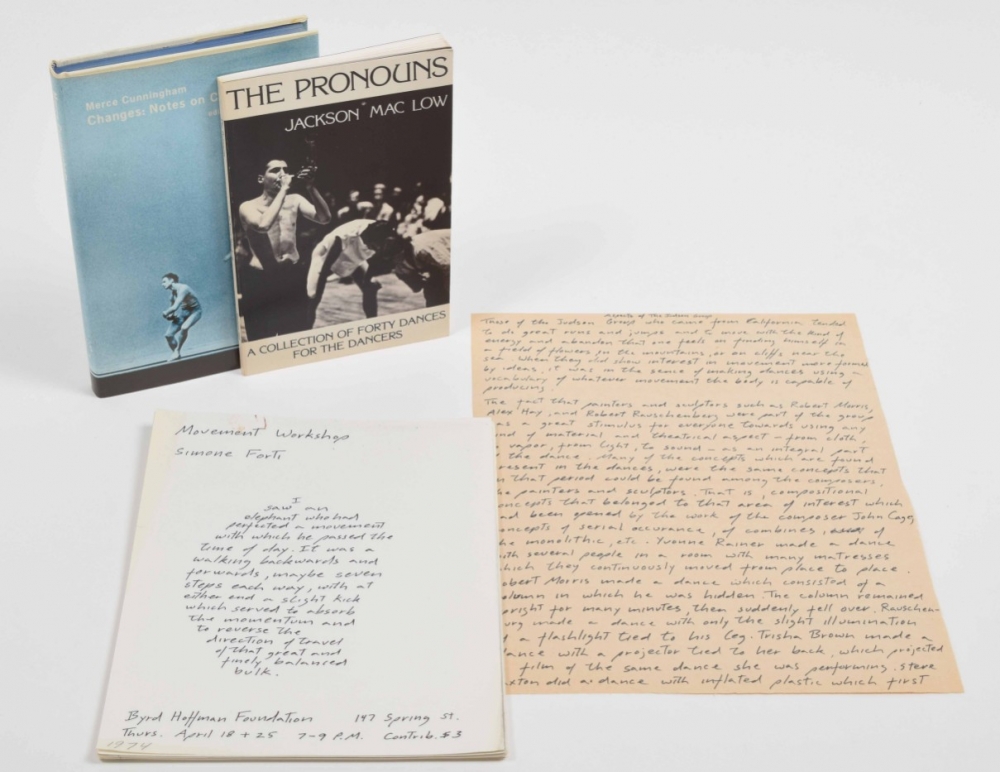 Merce Cunningham
Changes: Notes on
THE PRONOUNS
JACKSON MAC LOW
A COLLECTION OF FORTY DANCES
FOR THE DANCERS
Movement Workshop
Simone Forti
I
saw an
elephant who had
perfected a movement
with which he passed the
time of day. It was a
walking backwards and
forwards, maybe seven
steps each way, with at
either end a slight kick
which served to absorb
the momentum and
to reverse the
direction of travel
of that great and
finely balanced
bulk.
Byrd Hoffman Foundation 147 Spring St.
Thurs. April 18 + 25 7-9 P.M. Contrib. $3
1974
Aspects of The Judson Group
Those of the Judson Group who came from California tended
to do great runs and jumps and to move with the kind of
energy and abandon that one feels on finding himself in
a field of flowers in the mountains, or on cliffs near the
sea. When they did show interest in movement more formed
by ideas, it was in the sense of making dances using a
vocabulary of whatever movement the body is capable of
producing.
The fact that painters and sculptors such as Robert Morris,
Alex Hay, and Robert Rauschenberg were part of the group
was a great stimulus for everyone towards using any
kind of material and theatrical aspect - from cloth,
vapor, from light, to sound - as an integral part
the dance. Many of the concepts which are found
present in the dances, were the same concepts that
that period could be found among the composers,
painters and sculptors. That is, compositional
concepts that belonged to that area of interest which
had been opened by the work of the composer John Cage,
concepts of serial occurance, of combines, of
the monolithic, etc. Yvonne Rainer made a dance
with several people in a room with many matresses
which they continuously moved from place to place.
Robert Morris made a dance which consisted of a
column in which he was hidden. The column remained
upright for many minutes, then suddenly fell over. Rauschen-
urg made a dance with only the slight illumination
a flashlight tied to his leg. Trisha Brown made a
dance with a projector tied to her back, which projected
film of the same dance she was performing. Steve
axton did a dance with inflated plastic which first